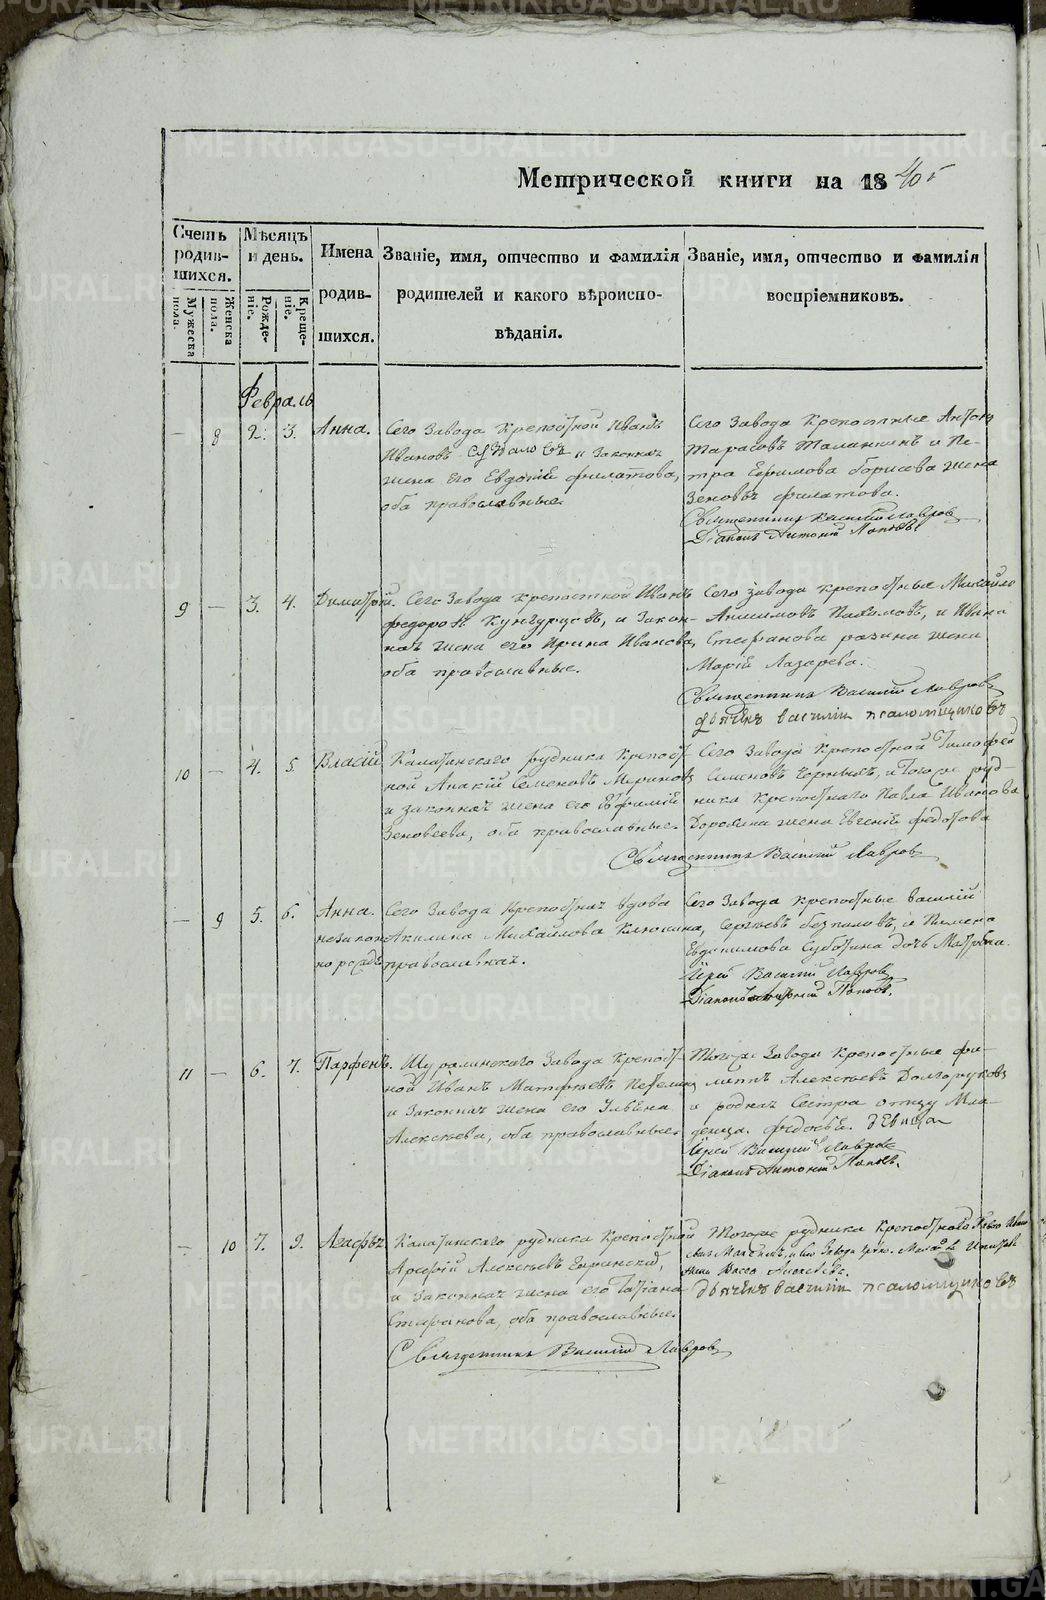 Метрической книги на 1840
Счетъ родив-шихся.
Мужеска пола.
Женска пола.
Мѣсяцъ и день.
Рожде-ніе.
Креще-ніе.
Имена
родив-
шихся.
Званіе, имя, отчество и фамилія
родителей и какого вѣроиспо-
вѣданія.
Званіе, имя, отчество и фамилія
воспріемниковъ.
Февраль
— 8 2. 3. Анна.
Сего Завода Крепостной Иванъ
Ивановъ и Законная
жена его Евдокія филатова,
оба православные
Сего Завода Крепостные Антонъ
Тарасовъ Таланкинъ и Пе-
тра Ефимова борисова жена
Зеновья филатова.
Священникъ Василій Лавровъ
Діаконъ Антоній Поповъ.
9 — 3. 4. Димитрій.
Сего Завода Крепостной Иванъ
федоровъ Кунгурцовъ, и Закон-
ная жена его Ирина Иванова,
оба православные.
Сего завода крепостные Михайло
Анисимовъ Пахомовъ, и Ивана
Стефанова разина жена
Марія Лазарева.
Священникъ Василій Лавровъ
дьячекъ василій псаломщиковъ
10 — 4. 5. Власій
Калатинскаго рудника Крепост-
ной Акакій Семеновъ Мериновъ
и законная жена его Ефимія
Зеновеева, оба православные.
Сего Завода Крепостной Тимофей
Семеновъ Черныхъ, и Тогоже руд-
ника Крепостнаго Павла Иванова
Дорохина жена Евгенія федотова
Священникъ Василій Лавровъ
— 9 5. 6. Анна.
незакон
но рожде
Сего Завода Крепостная вдова
Акилина Михайлова Клюкина,
православная.
Сего Завода Крепостные василій
Сергеевъ безпаловъ, и Пимена
Евдокимова Суботина дочь Матрена.
Іерей Василій Лавровъ
Діаконъ Антоній Поповъ.
11 — 6. 7. Парфенъ.
Шуралинскаго Завода Крепост-
ной Иванъ Матфеевъ
и Законная жена его Ульяна
Алексеева, оба православные.
Тогоже Завода Крепостные фи-
липпъ Алексеевъ Долгоруковъ
и родная Сестра отцу Мла-
денца. федосья. девица
Іерей Василій Лавровъ
Діаконъ Антоній Поповъ.
— 10 7. 9. Агафья
Калатинскаго рудника Крепостной
Арсеній Алексеевъ
и Законная жена его Татіана
Стефанова, оба православные.
Священникъ Василій Лавровъ
Тогоже рудника Крепостной
дьячекъ василій псаломщиковъ